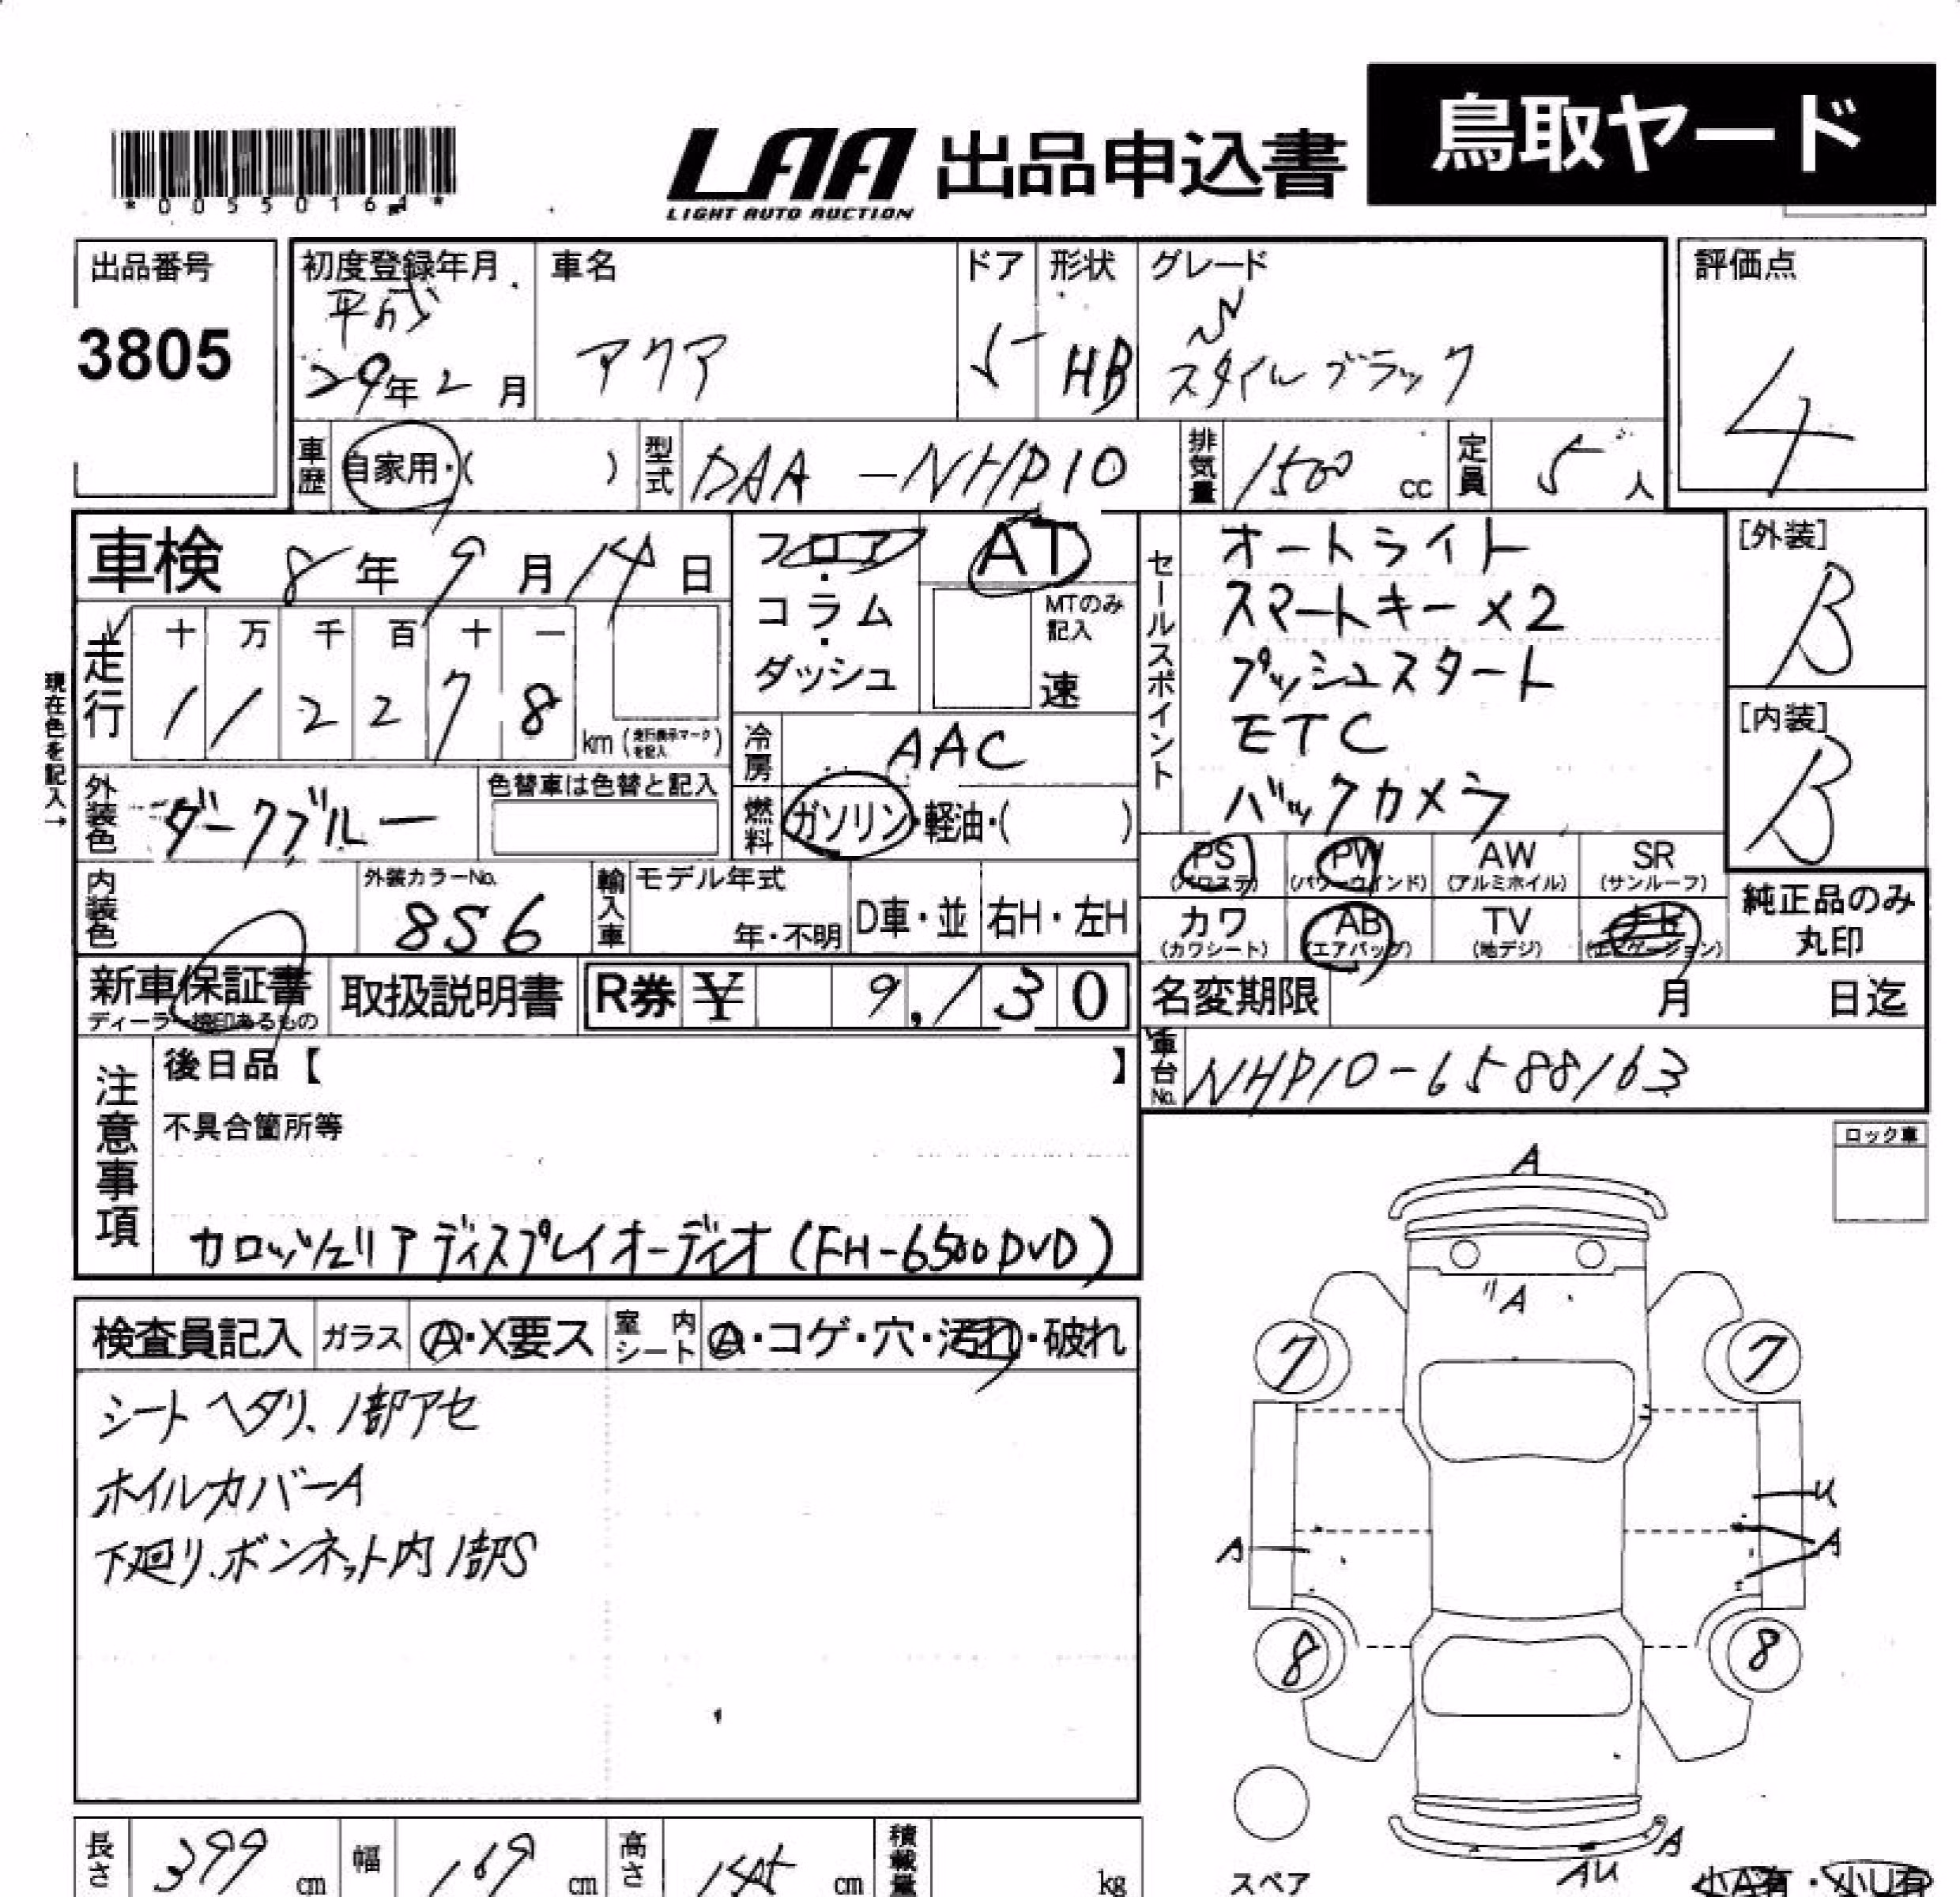 *0055016*
LAA 出品申込書 鳥取ヤード
LIGHT AUTO AUCTION
出品番号
3805
初度登録年月
平成
29年2月
車名
アクア
ドア
5
形状
HB
グレード
スタイルブラック
評価点
4
車歴 自家用・( )
型式 DAA-NHP10
排気量 1500 cc
定員 5人
車検 8年9月14日
フロア・コラム・ダッシュ
AT
MTのみ記入
速
セールスポイント
オートライト
スマートキー×2
プッシュスタート
ETC
バックカメラ
[外装]
B
[内装]
B
現在色を記入→
走行
十 万 千 百 十 一
1 1 2 2 7 8
km (走行表示マークを記入)
冷房 AAC
燃料 ガソリン・軽油・( )
外装色 ダークブルー
色替車は色替と記入
内装色
外装カラーNo.
8S6
輸入車
モデル年式
年・不明
D車・並
右H・左H
PS (パワステ)
PW (パワーウインド)
AW (アルミホイル)
SR (サンルーフ)
カワ (カワシート)
AB (エアバッグ)
TV (地デジ)
純正品のみ
丸印
新車保証書
ディーラー検印あるもの
取扱説明書
R券 ¥ 9,130
名変期限 月 日迄
車台No. NHP10-6588163
注意事項
後日品【 】
不具合箇所等
カロッツェリア ディスプレイオーディオ (FH-6500DVD)
ロック車
検査員記入
ガラス A・X要ス
室内シート A・コゲ・穴・汚れ・破れ
シートヘタリ、ノ部アセ
ホイルカバーA
下廻り、ボンネット内ノ部S
A
A
7
7
U
A
A
8
8
A
AU
スペア
小A有・小U有
長さ 399 cm
幅 169 cm
高さ 145 cm
積載量 kg